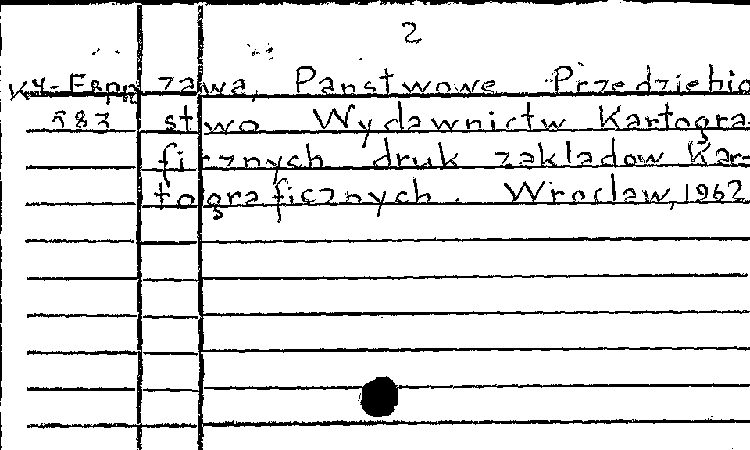 2
Ку-Европ zawa, Panstwowe Przedziebio
583 stwo Wydawnictw Kartogra-
ficznych druk zakladow Kar-
tograficznych. Wroclaw, 1962